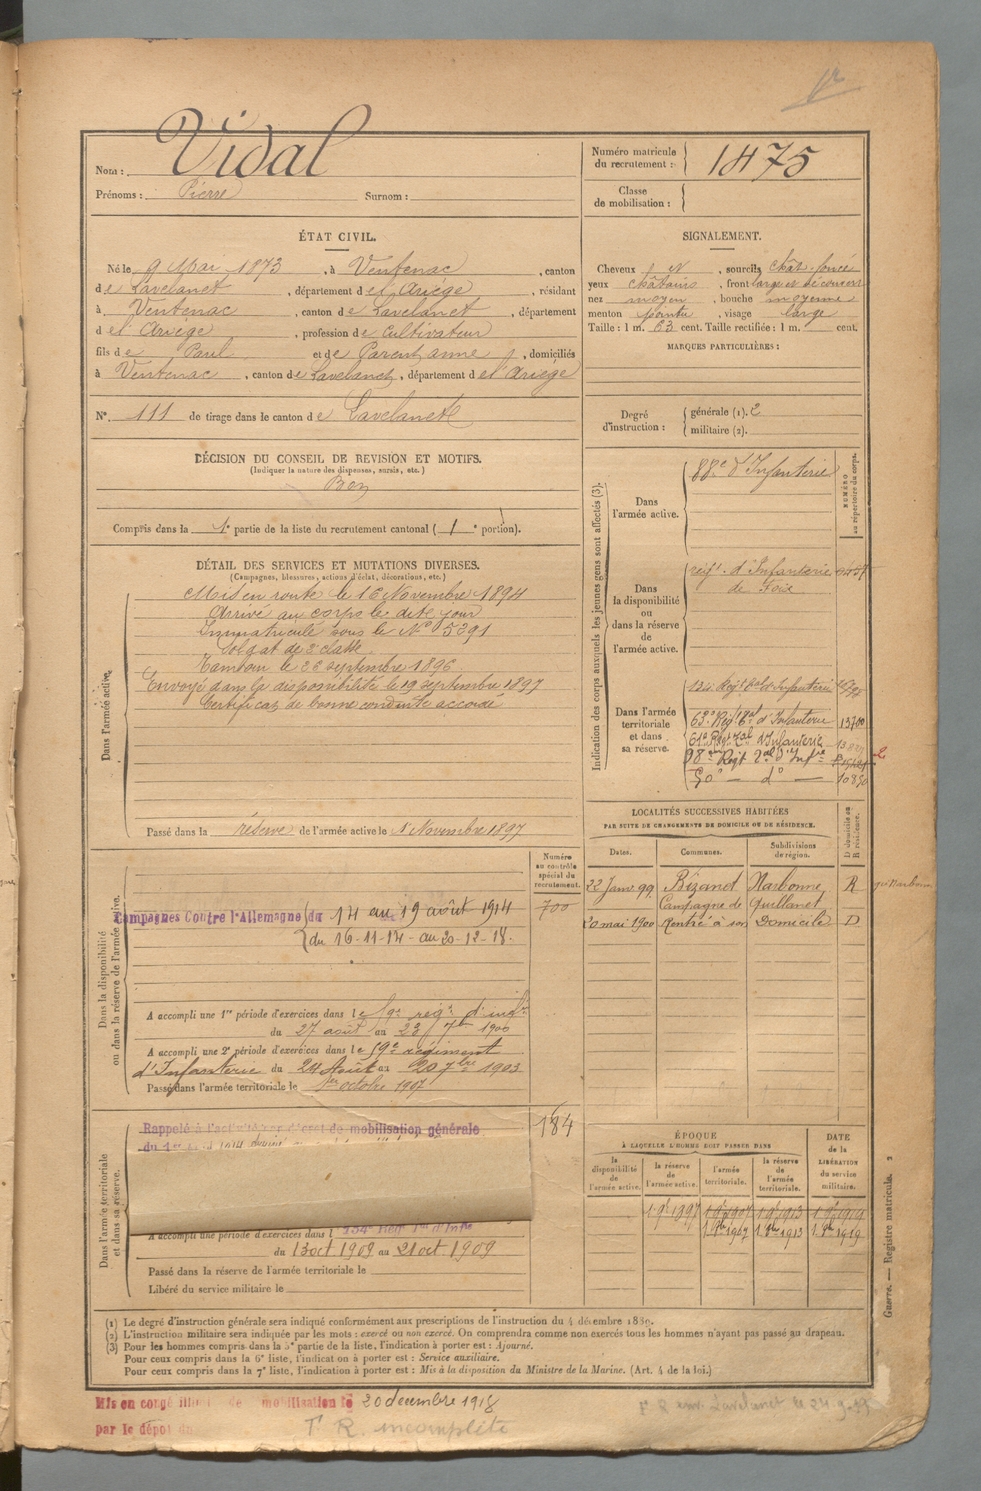 Nom : Vidal
Prénoms : Pierre Surnom :
Numéro matricule du recrutement : 1475
Classe de mobilisation :
ÉTAT CIVIL.
Né le 9 Mai 1873, à Ventenac, canton
de Lavelanet, département de l'Ariège, résidant
à Ventenac, canton de Lavelanet, département
de l'Ariège, profession de Cultivateur
fils de Paul et de Parent anne, domiciliés
à Ventenac, canton de Lavelanet, département de l'Ariège
N° 111 de tirage dans le canton de Lavelanet
SIGNALEMENT.
Cheveux, sourcils chât. foncé
yeux châtains, front large et découvert
nez moyen, bouche moyenne
menton pointu, visage large
Taille : 1 m. 63 cent. Taille rectifiée : 1 m. cent.
MARQUES PARTICULIÈRES :
Degré d'instruction : générale (1). 2
militaire (2).
DÉCISION DU CONSEIL DE REVISION ET MOTIFS.
(Indiquer la nature des dispenses, sursis, etc.)
Bon
Compris dans la 1e partie de la liste du recrutement cantonal (1e portion).
DÉTAIL DES SERVICES ET MUTATIONS DIVERSES.
(Campagnes, blessures, actions d'éclat, décorations, etc.)
Dans l'armée active.
Mis en route le 16 Novembre 1894
Arrivé au corps le dit jour
Immatriculé sous le N° 5391
Soldat de 2e classe
Tambour le 22 septembre 1896
Envoyé dans la disponibilité le 19 septembre 1897
Certificat de bonne conduite accordé
Passé dans la réserve de l'armée active le 1 Novembre 1897
Indication des corps auxquels les jeunes gens sont affectés (3).
NUMÉRO au répertoire du corps.
Dans l'armée active.
88e d'Infanterie
Dans la disponibilité ou dans la réserve de l'armée active.
d'Infanterie
de Foix
Dans l'armée territoriale et dans sa réserve.
134 Regt tal d'Infanterie
63e Regt tal d'Infanterie 13700
61e Regt tal d'Infanterie
98 Regt tal d'Infie
50e — do — 10850
LOCALITÉS SUCCESSIVES HABITÉES
PAR SUITE DE CHANGEMENTS DE DOMICILE OU DE RÉSIDENCE.
Dates. Communes. Subdivisions de région. D domicile ou R résidence.
22 Janv. 99. Bizanet Narbonne R
Campagne de Quillanet
20 mai 1900 Rentré à son Domicile D
Numéro au contrôle spécial du recrutement.
700
Dans la disponibilité ou dans la réserve de l'armée active.
Campagnes Contre l'Allemagne du 14 au 19 août 1914
du 16-11-14 - au 20-12-18.
A accompli une 1re période d'exercices dans le 59e reg. d'inf.
du 27 août au 23 7bre 1900
A accompli une 2e période d'exercices dans le 59e régiment
d'Infanterie du 24 Août au 20 7bre 1903
Passé dans l'armée territoriale le 1er octobre 1907
184
Dans l'armée territoriale et dans sa réserve.
Rappelé à l'activité par décret de mobilisation générale
A accompli une période d'exercices dans l 134e Reg. Tal d'Infie
du 13 oct 1909 au 21 oct 1909
Passé dans la réserve de l'armée territoriale le
Libéré du service militaire le
ÉPOQUE
À LAQUELLE L'HOMME DOIT PASSER DANS
DATE de la LIBÉRATION du service militaire.
la disponibilité de l'armée active. la réserve de l'armée active. l'armée territoriale. la réserve de l'armée territoriale.
1 9bre 1897 1 9bre 1907 1 9bre 1913 1 9bre 1919
1. 8bre 1907 1. 8bre 1913 1. 8bre 1919
Guerre. — Registre matricule.
(1) Le degré d'instruction générale sera indiqué conformément aux prescriptions de l'instruction du 4 décembre 1889.
(2) L'instruction militaire sera indiquée par les mots : exercé ou non exercé. On comprendra comme non exercés tous les hommes n'ayant pas passé au drapeau.
(3) Pour les hommes compris dans la 5e partie de la liste, l'indication à porter est : Ajourné.
Pour ceux compris dans la 6e liste, l'indication à porter est : Service auxiliaire.
Pour ceux compris dans la 7e liste, l'indication à porter est : Mis à la disposition du Ministre de la Marine. (Art. 4 de la loi.)
Mis en congé de mobilisation le 20 decembre 1918
par le dépôt
F. R. incomplète